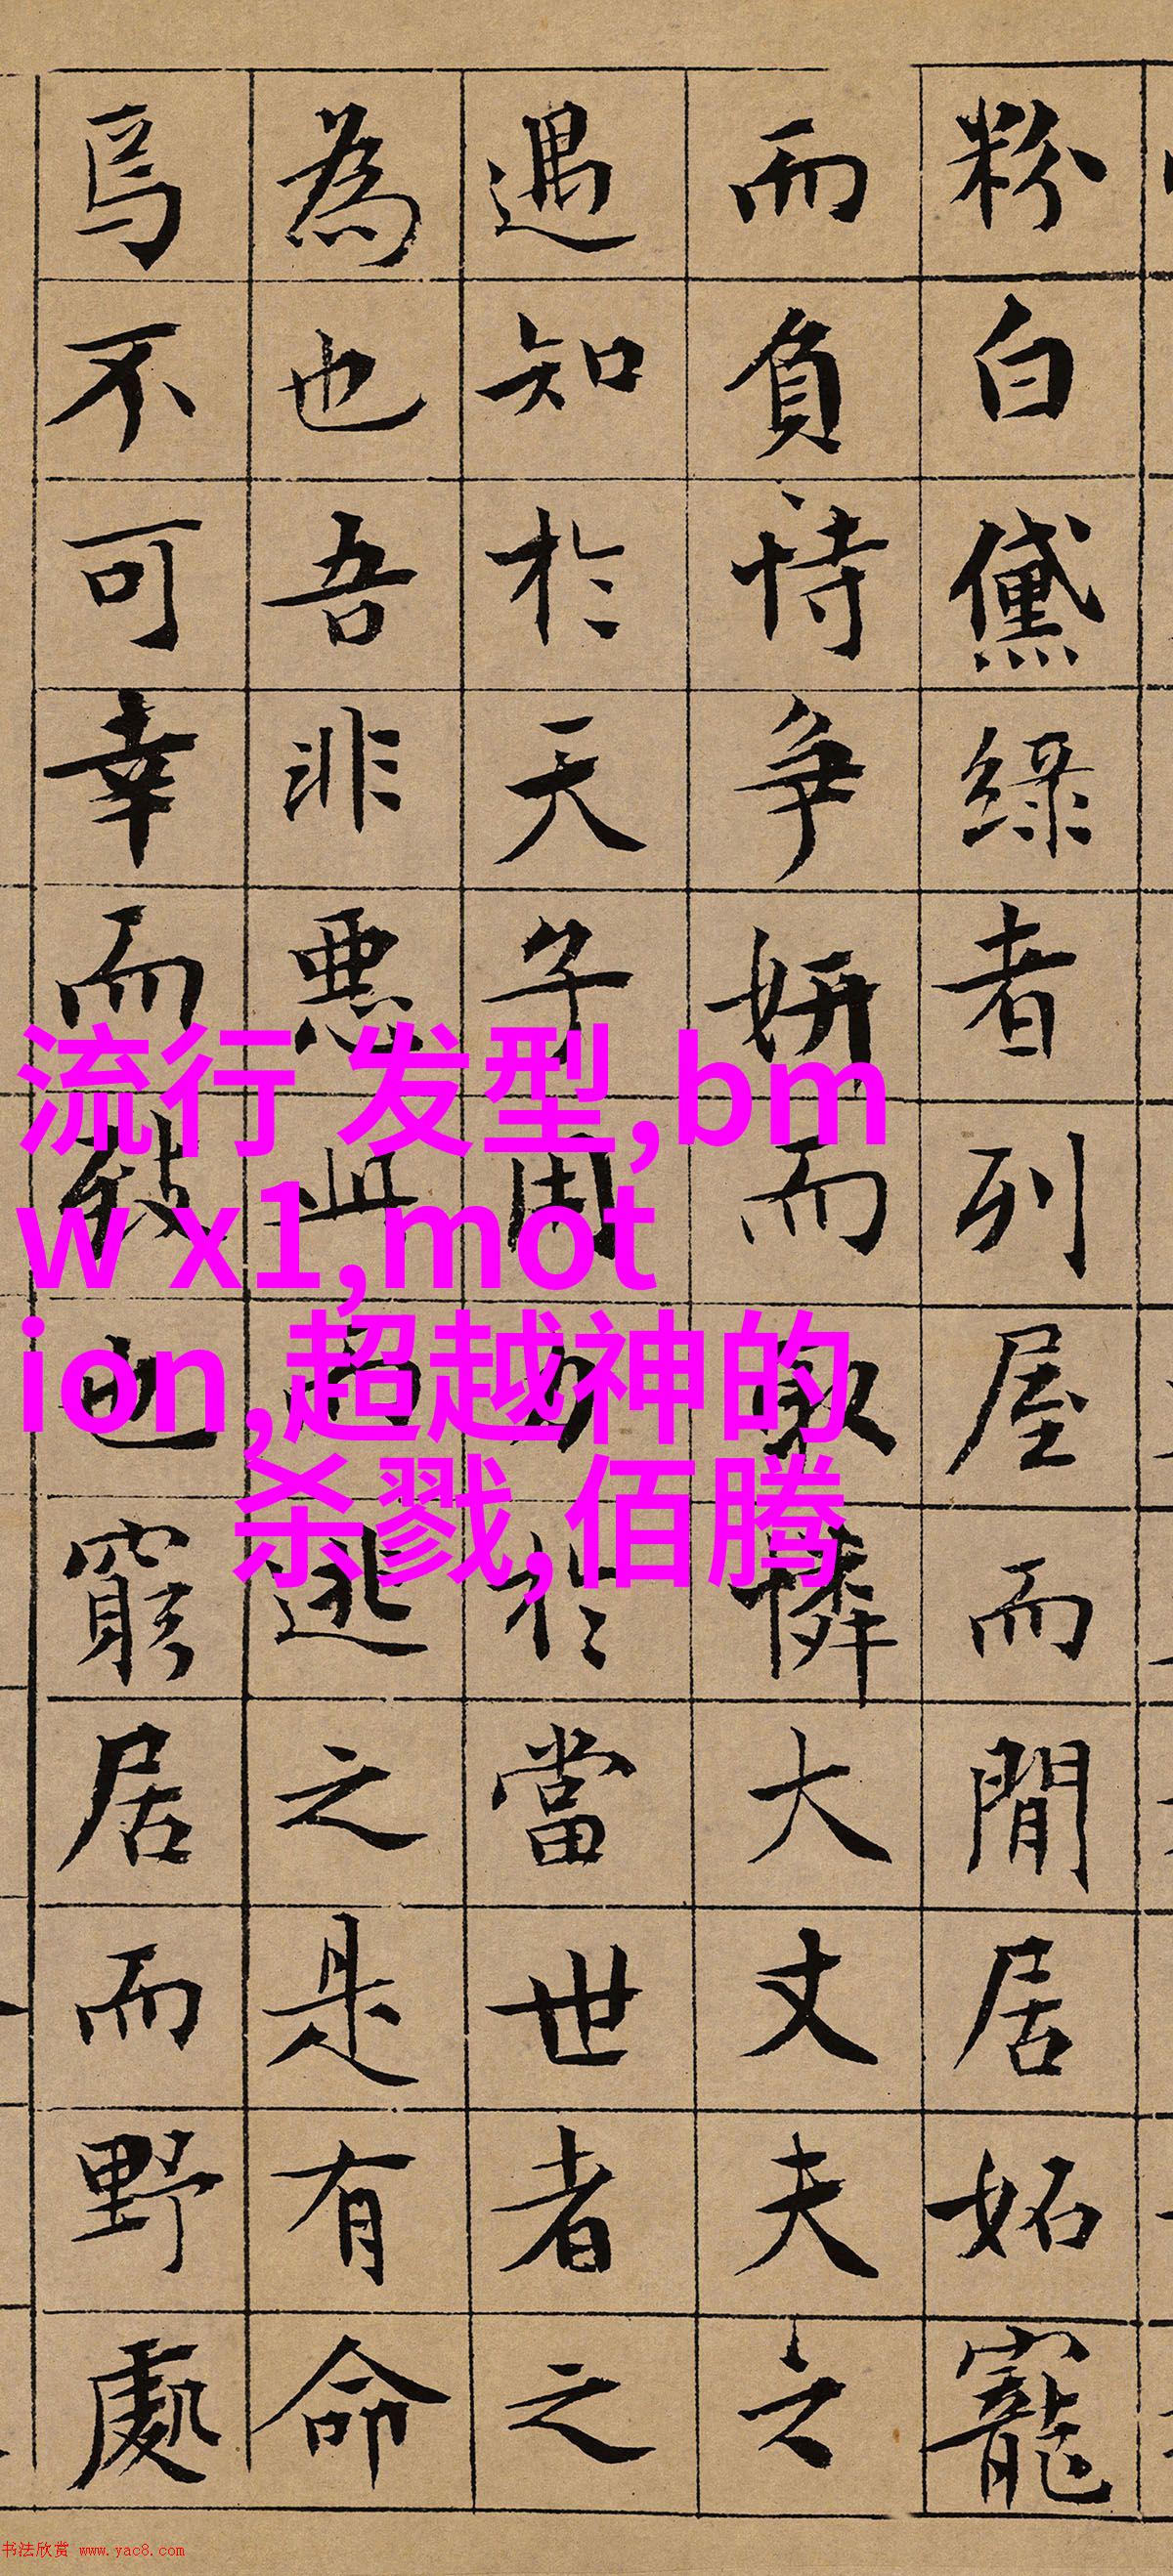 粉白黛綠者列屋而閒居妬寵
而負恃爭妍而取憐大丈夫之
遇知於天子用力於當世者之
為也吾非惡此而逃之是有命
焉不可幸而致也窮居而野處
流行 发型,bm
w x1,mot
ion,超越神的
杀戮,佰腾
书法欣赏 www.yac8.com